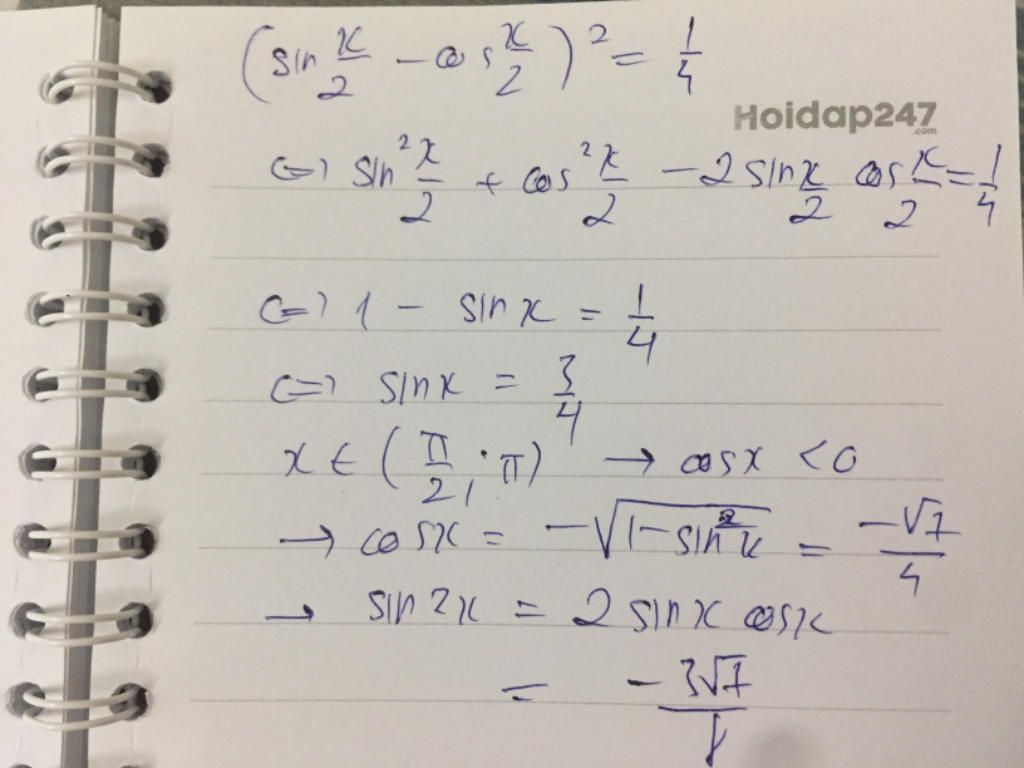 (sin x/2 - cos x/2)² = 1/4
Hoidap247
.com
<=> sin² x/2 + cos² x/2 - 2 sin x/2 cos x/2 = 1/4
<=> 1 - sin x = 1/4
<=> sin x = 3/4
x ∈ (π/2; π) → cos x < 0
→ cos x = -√(1 - sin² x) = -√7/4
→ sin 2x = 2 sin x cos x
= -3√7/